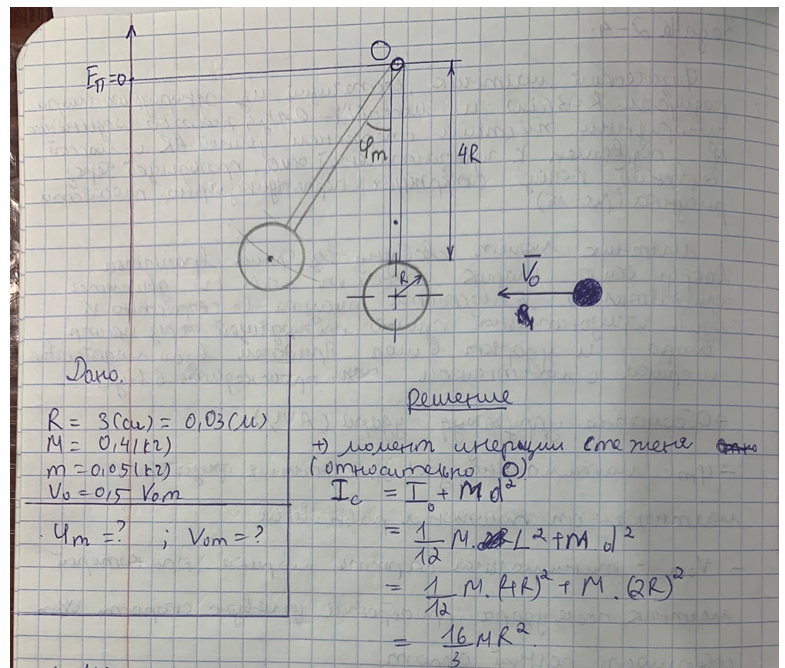 O
Eп=0
φm
4R
R
V̅₀
Дано.
R = 3(см) = 0,03(м)
M = 0,4(кг)
m = 0,05(кг)
V₀ = 0,5 V₀m
φm = ? ; V₀m = ?
Решение
+) момент инерции стеженя
(относительно O)
I_c = I₀ + M d²
= 1/12 M · L² + M d²
= 1/12 M · (4R)² + M · (2R)²
= 16/3 MR².